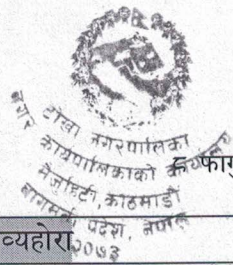 टोखा नगरपालिका
नगर कार्यपालिकाको कार्यालय
काठमाडौं
बागमती प्रदेश, नेपाल
२०७३
फागु
व्यहोरा